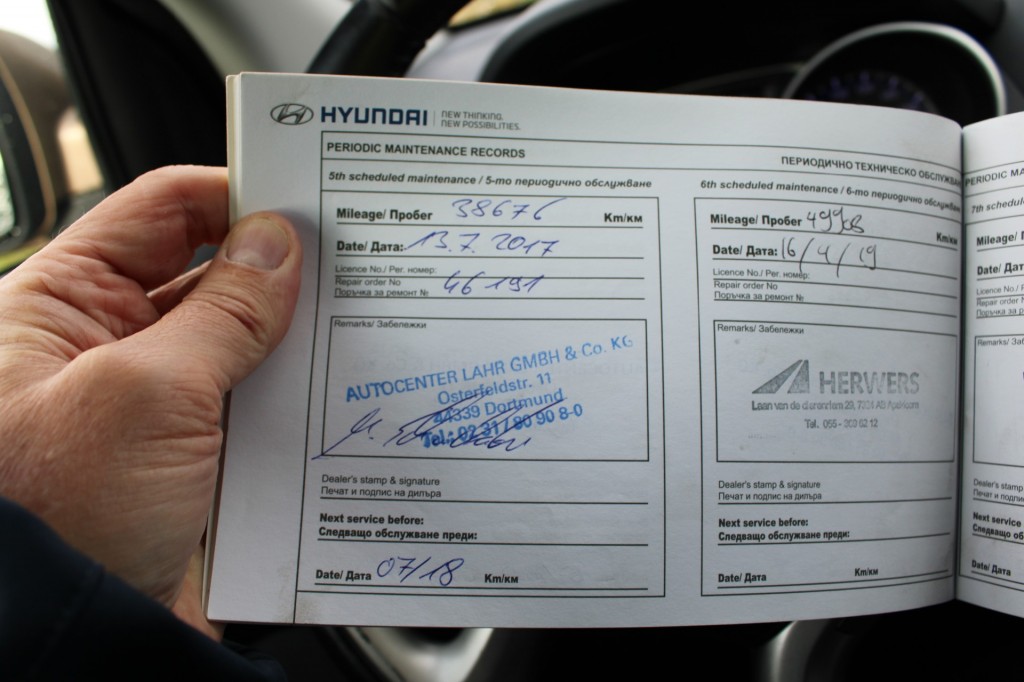 HYUNDAI
NEW THINKING.
NEW POSSIBILITIES.
PERIODIC MAINTENANCE RECORDS
ПЕРИОДИЧНО ТЕХНИЧЕСКО ОБСЛУЖВАН
5th scheduled maintenance / 5-то периодично обслужване
Mileage/ Пробег 38676 Km/км
Date/ Дата: 13.7.2017
Licence No./ Рег. номер:
Repair order No
Поръчка за ремонт № 46 191
Remarks/ Забележки
AUTOCENTER LAHR GMBH & Co. KG
Osterfeldstr. 11
44339 Dortmund
Tel.: 02 31 / 80 90 8-0
Dealer's stamp & signature
Печат и подпис на дилъра
Next service before:
Следващо обслужване преди:
Date/ Дата 07/18 Km/км
6th scheduled maintenance / 6-то периодично обслужване
Mileage/ Пробег Km/км
Date/ Дата: 16/4/19
Licence No./ Рег. номер:
Repair order No
Поръчка за ремонт №
Remarks/ Забележки
HERWERS
Laan van de
Tel. 055 -
Dealer's stamp & signature
Печат и подпис на дилъра
Next service before:
Следващо обслужване преди:
Date/ Дата Km/км
PERIODIC MA
7th schedul
Mileage/ П
Date/ Дат
Licence No./ Р
Repair order N
Поръчка за р
Remarks/ Заб
Dealer's stamp
Печат и подпис
Next service
Следващо об
Date/ Дата